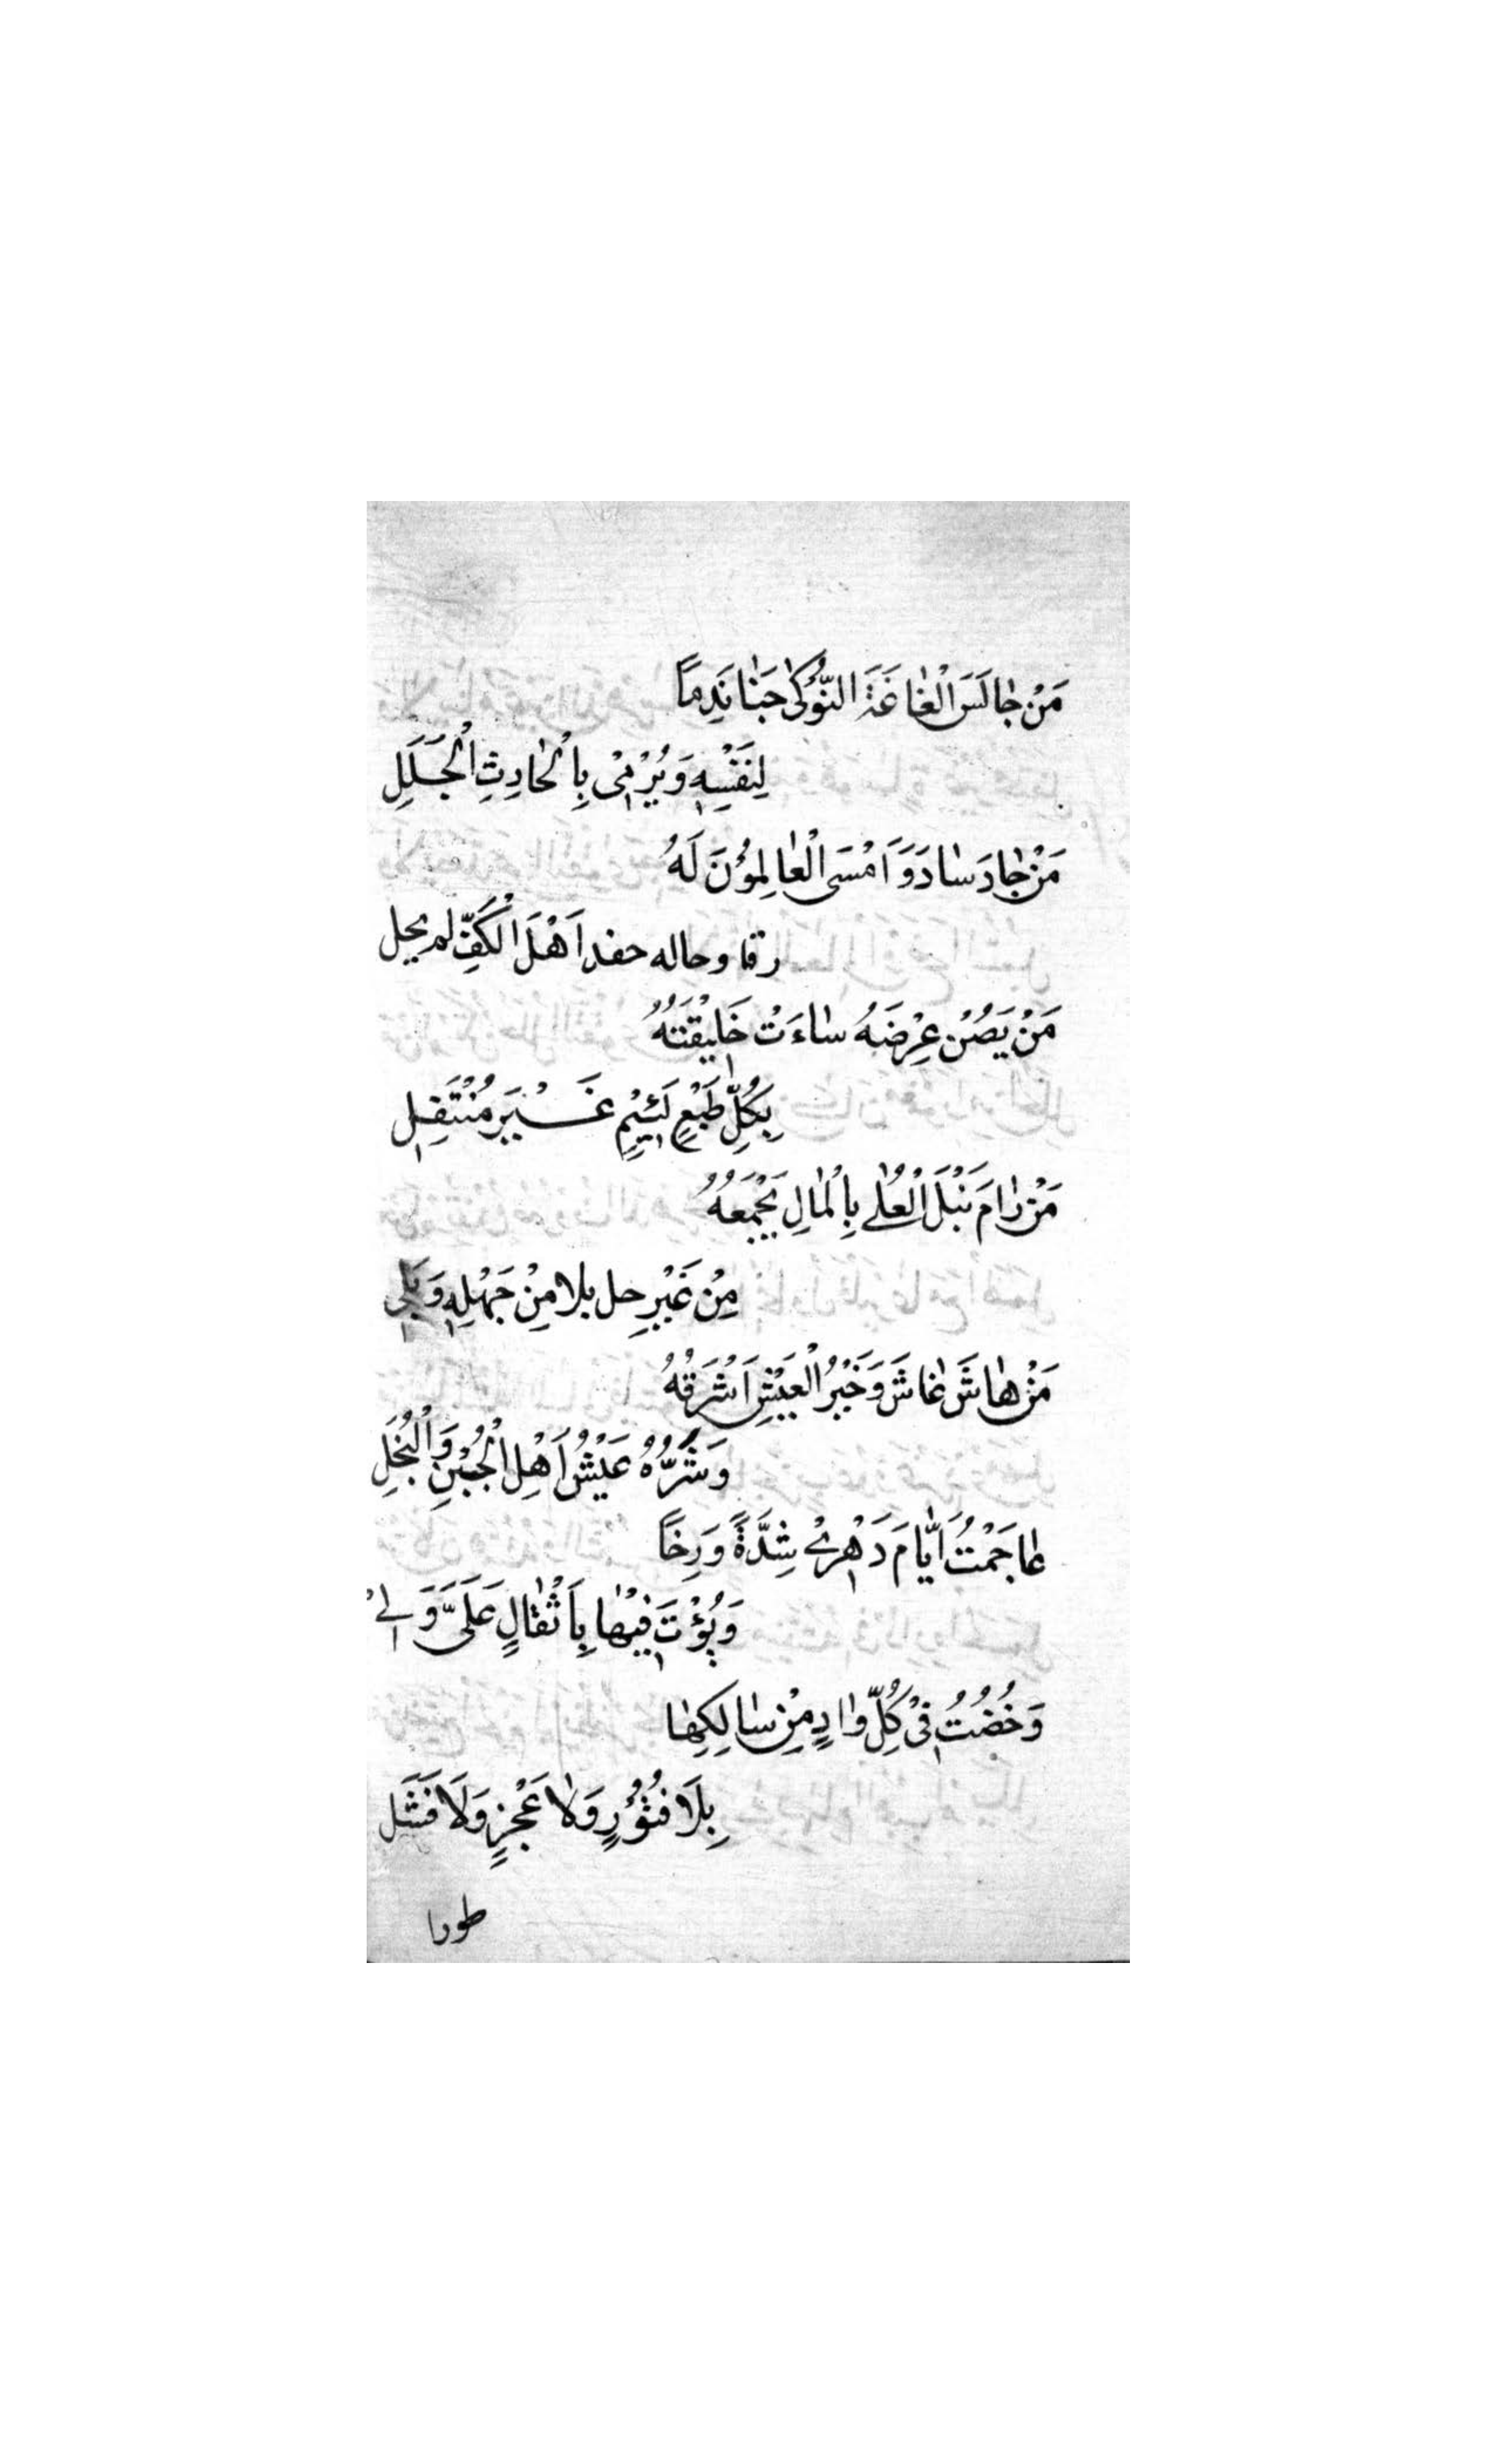 مَنْ جٰالَسَ الْغٰاغَةَ النَّوْكٰى جَنٰا نَدِمًا
لِنَفْسِهِ وَيُرْمٰى بِالْحٰادِثِ الْجَلَلِ
مَنْ جٰادَ سٰادَ وَاَمْسَى الْعٰالِمُوْنَ لَهُ
رقا وحاله حفد اَهْلَ الْكَفِّ لم يحل
مَنْ يَصُنْ عِرْضَهُ سٰاءَتْ خَلِيْقَتُهُ
بِكُلِّ طَبْعٍ لَئِيْمٍ غَيْرِ مُنْتَقِلِ
مَنْ رٰامَ نَيْلَ الْعُلٰى بِالْمٰالِ يَجْمَعُهُ
مِنْ غَيْرِ حل بلا مِنْ جَهْلِهِ وَبَلِي
مَنْ هٰاشَ عٰاشَ وَخَيْرُ الْعَيْشِ اَشْرَفُهُ
وَشَرُّهُ عَيْشُ اَهْلِ الْجُبْنِ وَالْبُخَلِ
عٰاجَمْتُ اَيّٰامَ دَهْرِيْ شِدَّةً وَرِخًا
وَبُؤْتَ فِيْهٰا بِاَثْقٰالٍ عَلَىَّ وَلِيْ
وَخُضْتُ فِيْ كُلِّ وٰادٍ مِنْ سٰالِكِهٰا
بِلَا فُتُوْرٍ وَلٰا عَجْزٍ وَلَا فَشَلِ
طورا